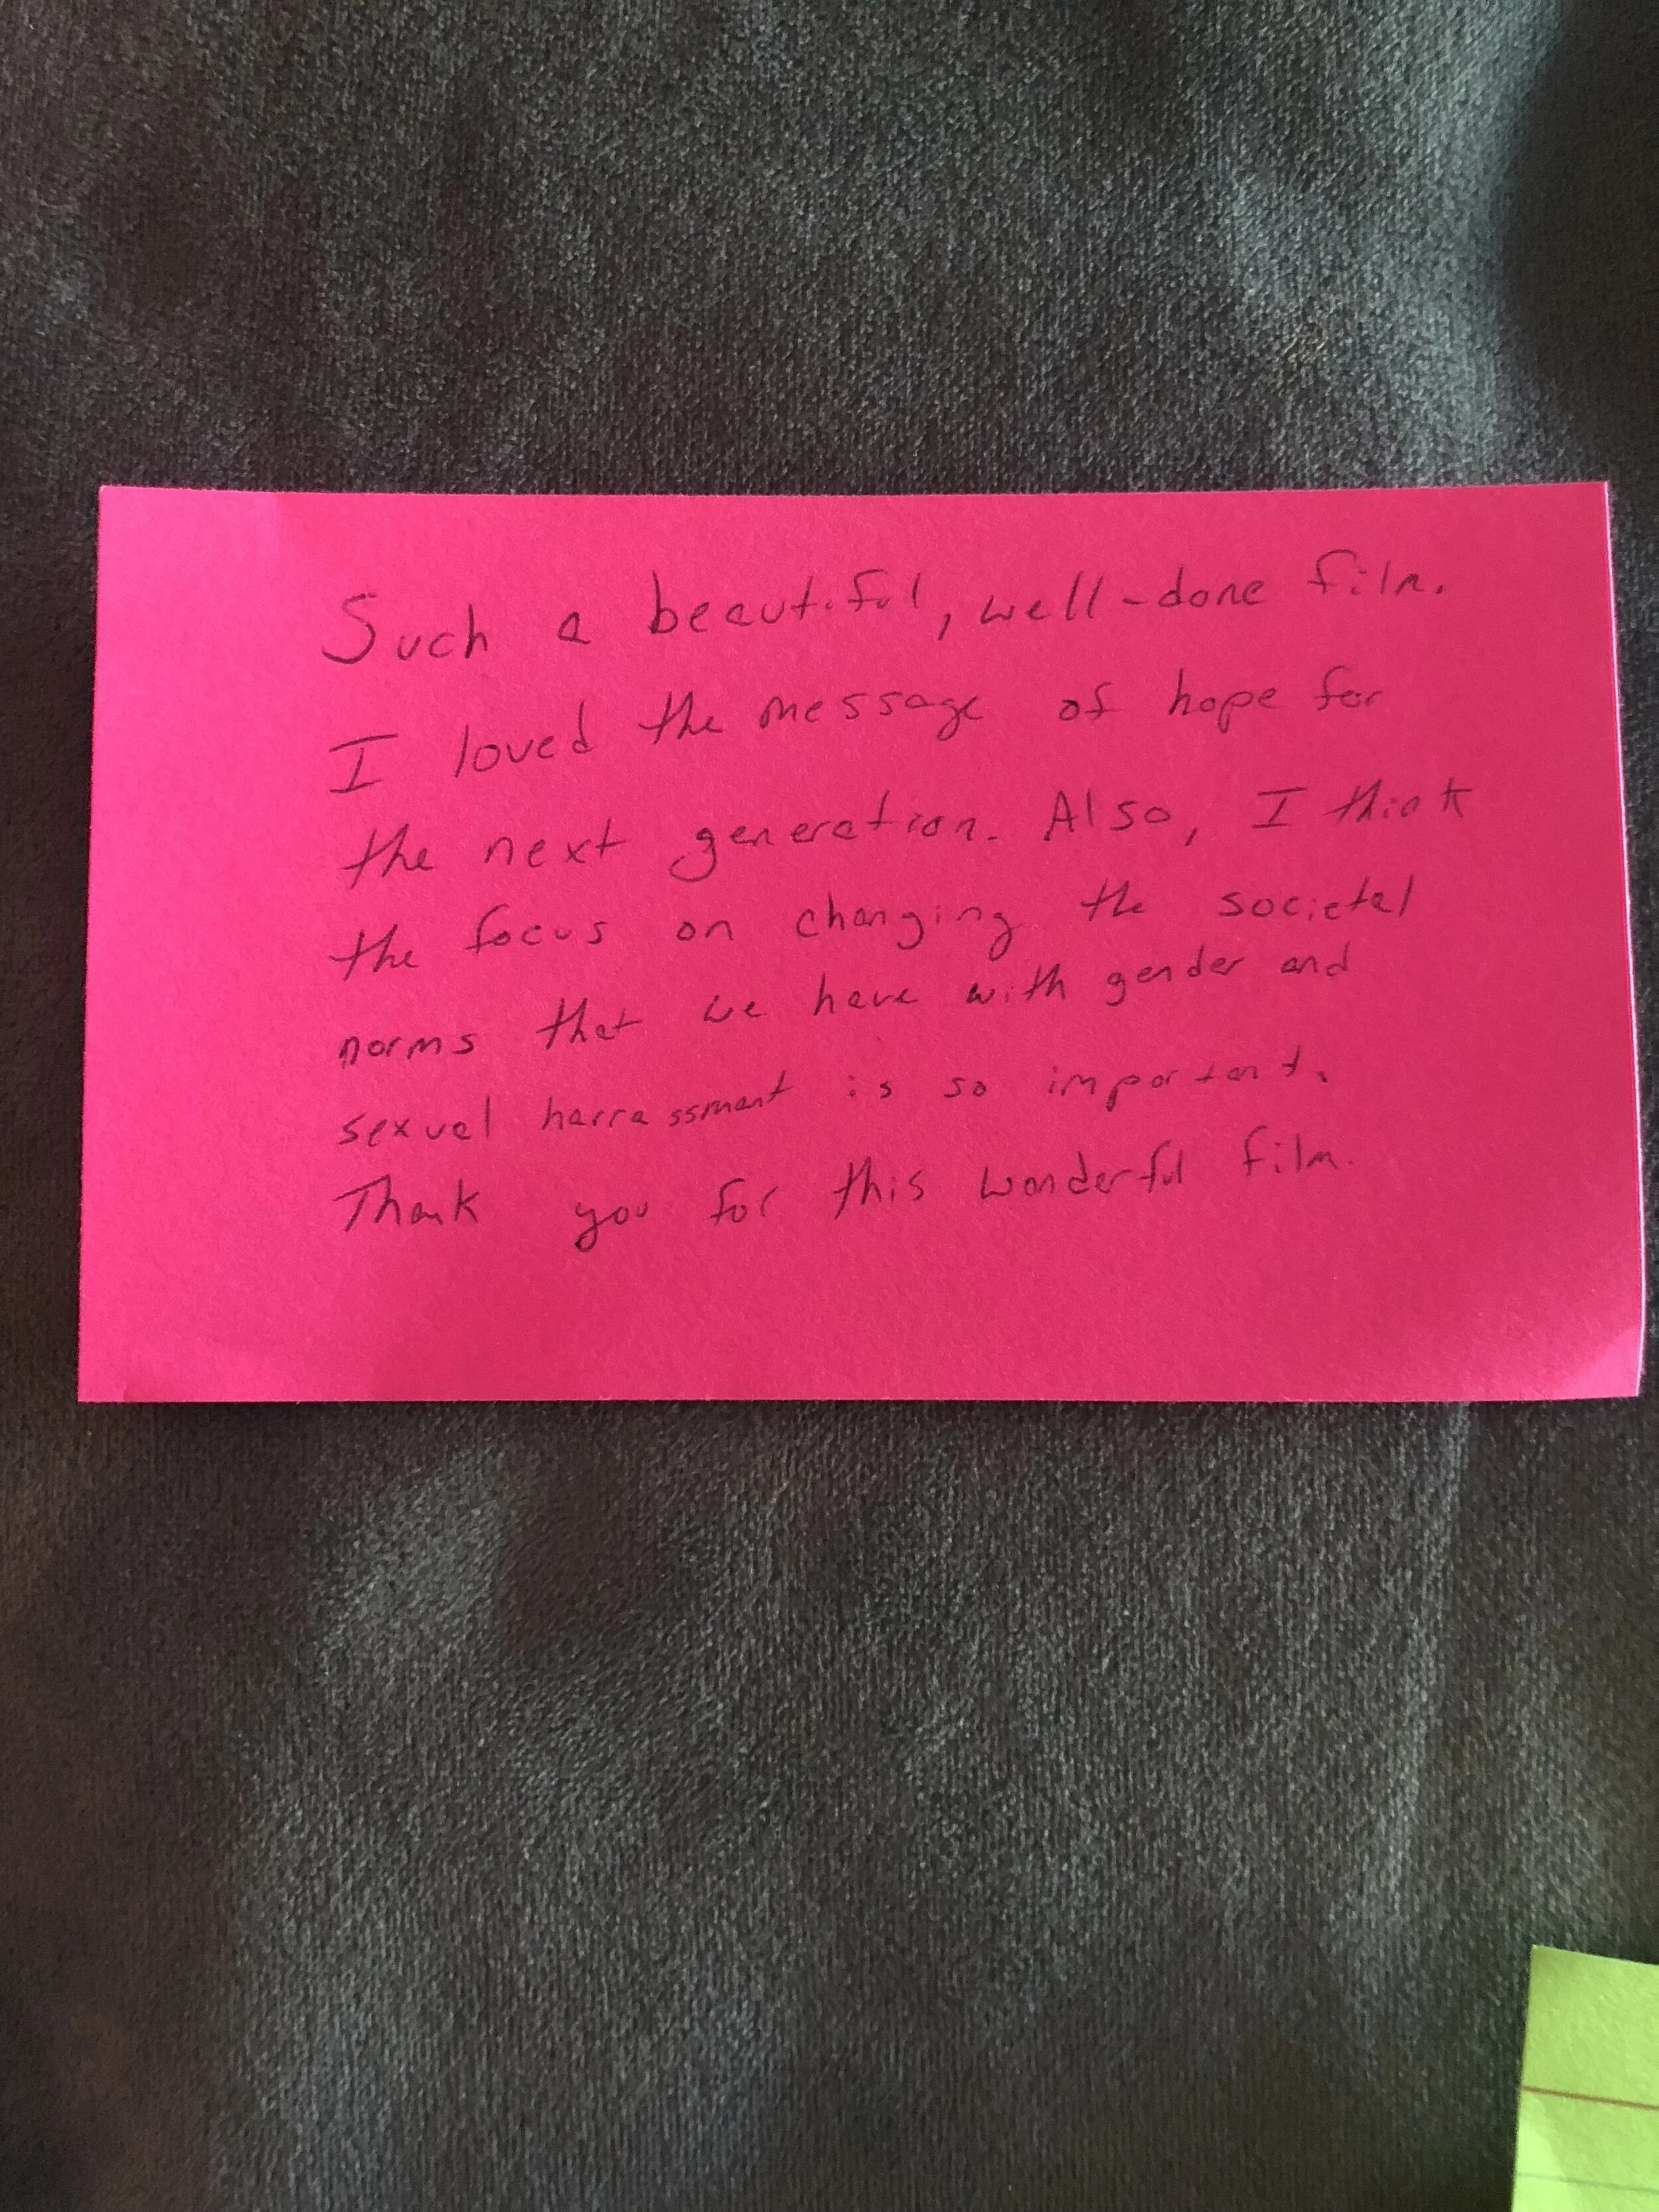 Such a beautiful, well-done film.
I loved the message of hope for
the next generation. Also, I think
the focus on changing the societal
norms that we have with gender and
sexual harrassment is so important.
Thank you for this wonderful film.